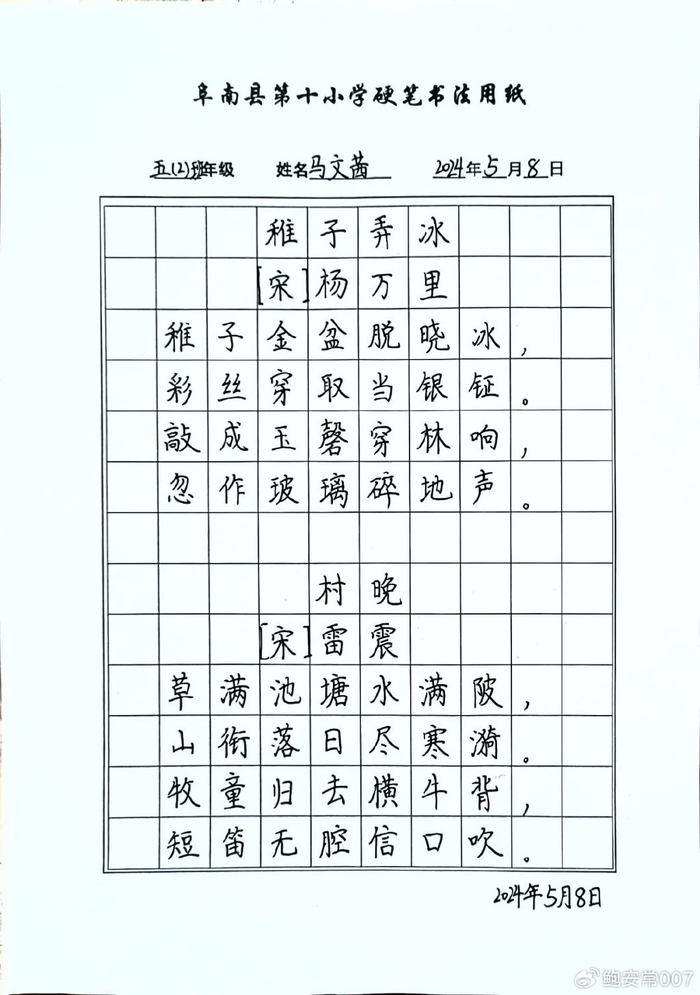 阜南县第十小学硬笔书法用纸
五(2)班年级 姓名马文茜 2024年5月8日
稚子弄冰
[宋]杨万里
稚子金盆脱晓冰，
彩丝穿取当银钲。
敲成玉磬穿林响，
忽作玻璃碎地声。
村晚
[宋]雷震
草满池塘水满陂，
山衔落日尽寒漪。
牧童归去横牛背，
短笛无腔信口吹。
2024年5月8日
@鲍安常007